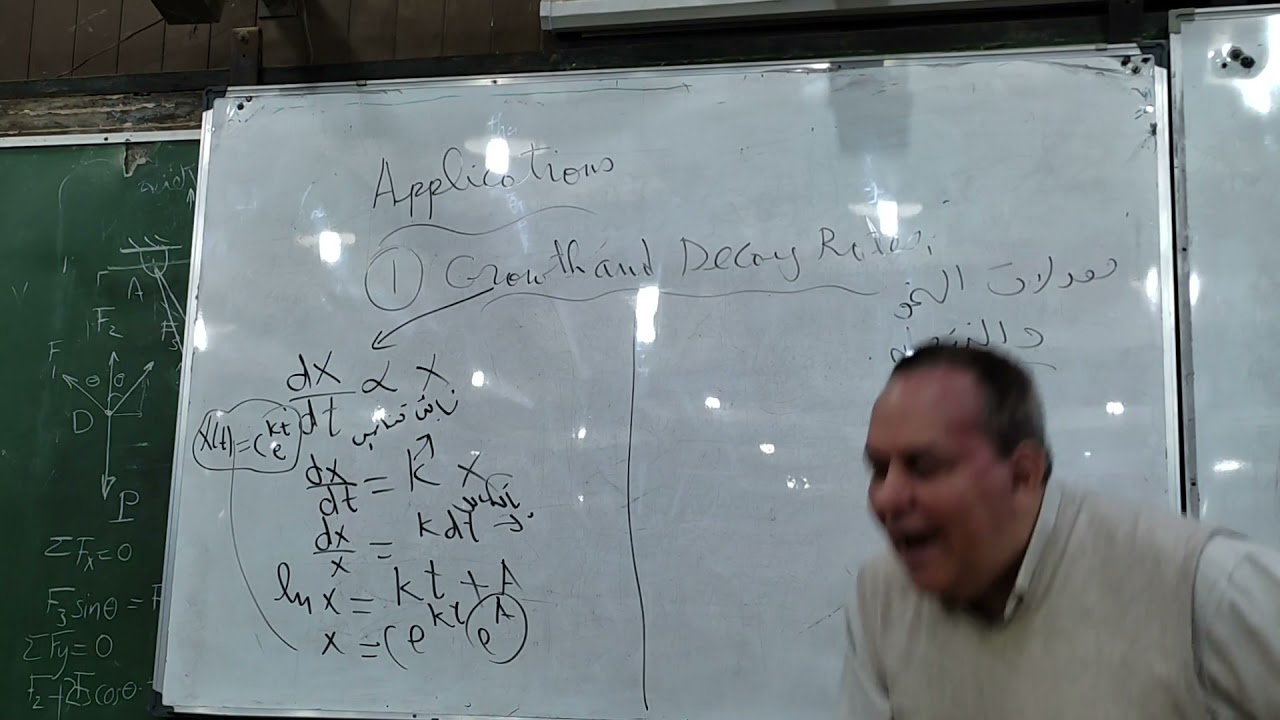 Applications
① Growth and Decay Rates
معدلات النمو
dx/dt α X
ثابت تناسب
X(t) = C e^kt
dx/dt = k x
بالتكامل
dx/x = k dt →
ln x = kt + A
x = C e^kt e^A
A
F2
F1
θ θ
D
P
ΣFx = 0
F3 sinθ = F
ΣFy = 0